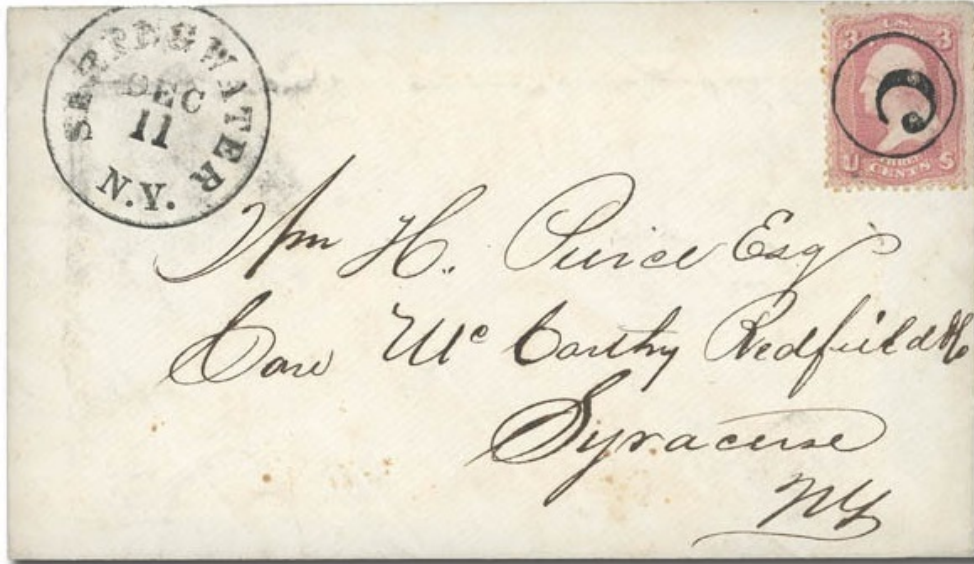 SPRINGWATER
DEC
11
N.Y.
U. S. 
3 3
C
U THREE S
CENTS
Wm H. Peirce Esq
Care McCarthy Redfield & Co
Syracuse
NY